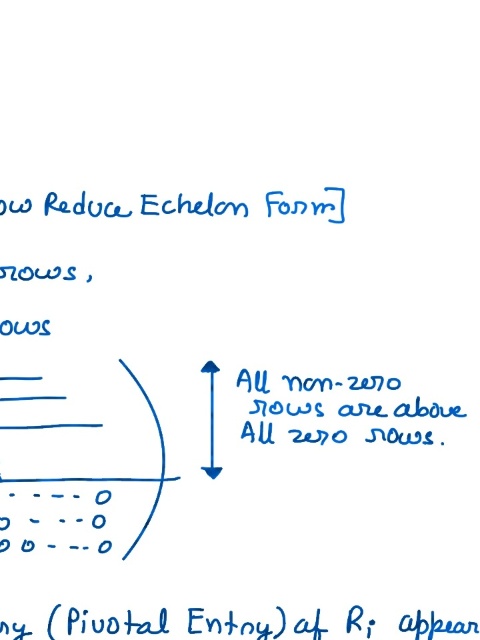 ow Reduce Echelon Form]
rows,
ows
All non-zero
rows are above
All zero rows.
. . - - - 0
0 - - - 0
0 0 - - - 0
ny (Pivotal Entry) of Ri appear